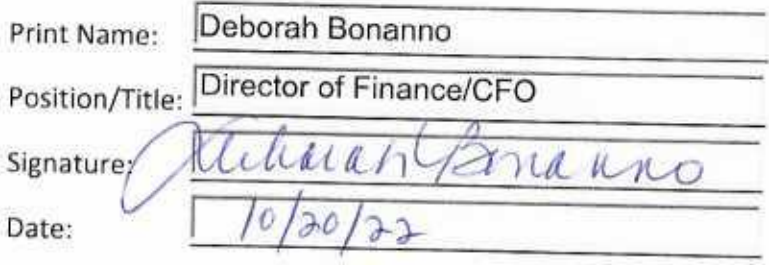 Print Name: Deborah Bonanno
Position/Title: Director of Finance/CFO
Signature: Deborah Bonanno
Date: 10/20/22